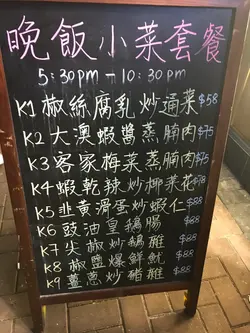 晚飯小菜套餐
5:30pm - 10:30pm
K1 椒絲腐乳炒通菜 $58
K2 大澳蝦醬蒸腩肉 $75
K3 客家梅菜蒸腩肉 $75
K4 蝦乾辣炒椰菜花 $78
K5 韭黃滑蛋炒蝦仁 $88
K6 豉油皇鵝腸 $88
K7 尖椒炒鵝腸 $88
K8 椒鹽爆鮮魷 $88
K9 薑蔥炒豬 $88